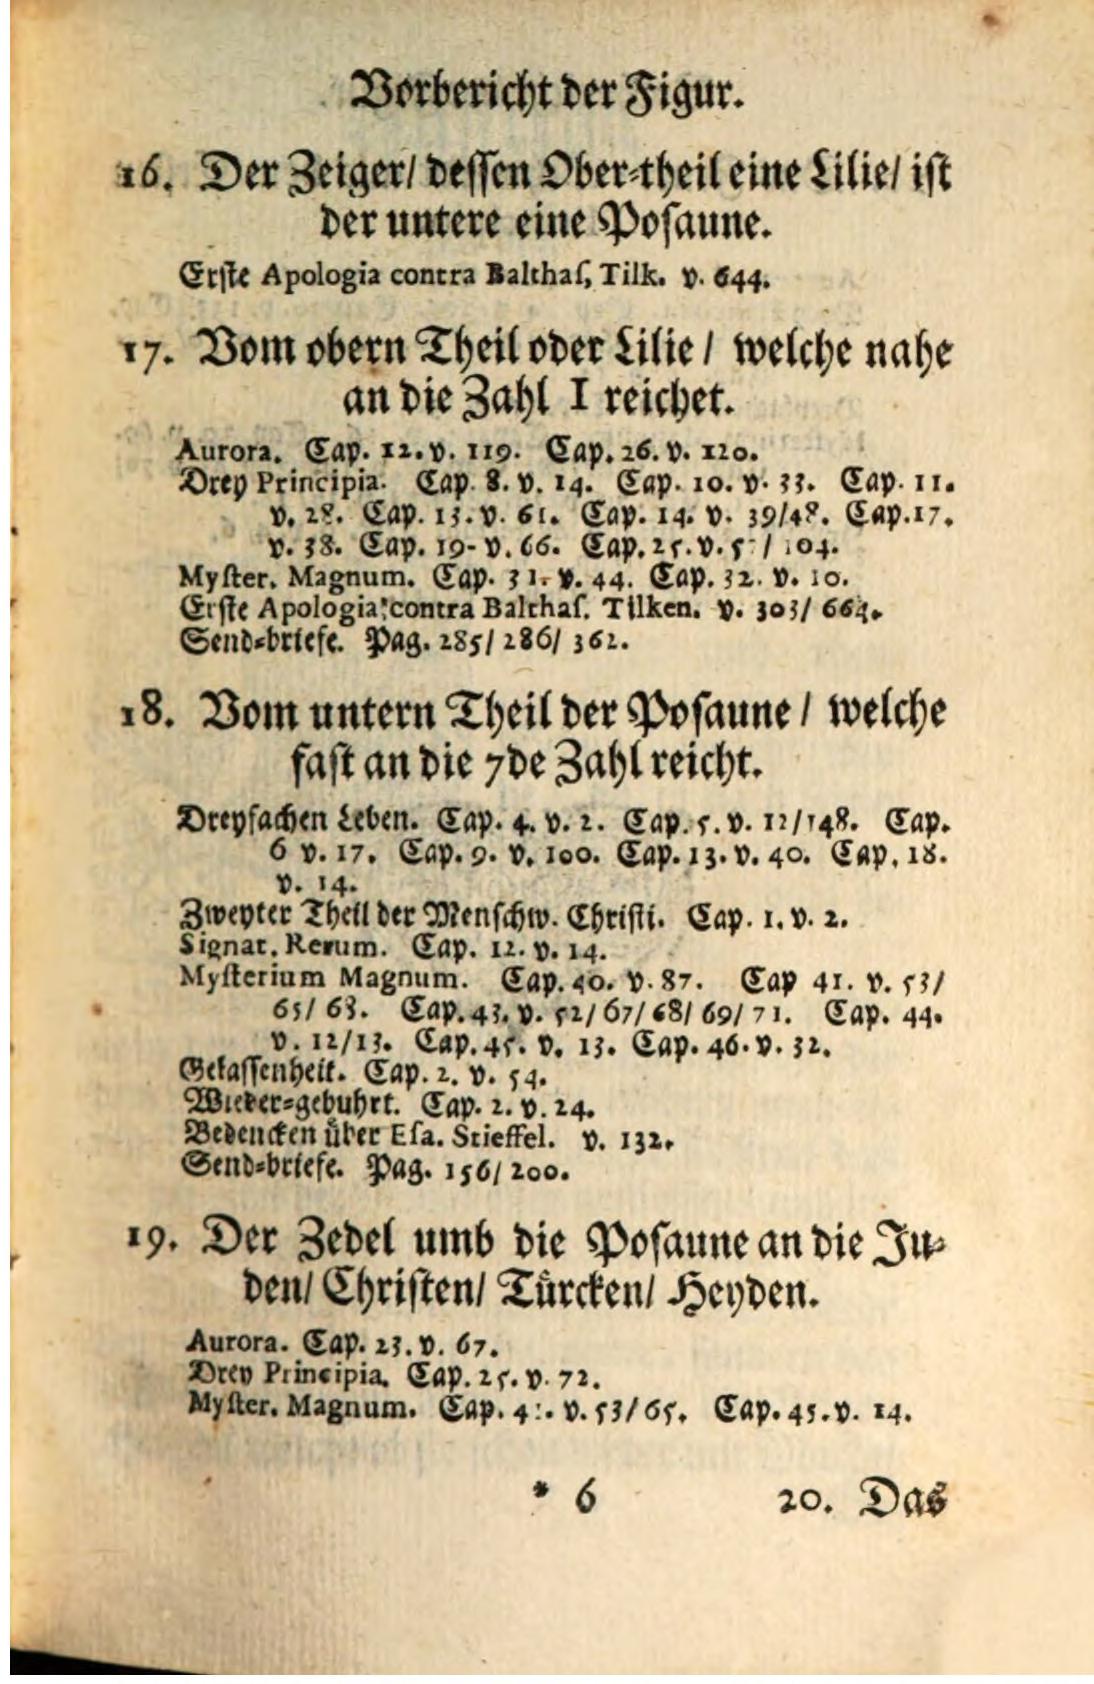 Vorbericht der Figur.
16. Der Zeiger/ dessen Ober-theil eine Lilie/ ist
der untere eine Posaune.
Erste Apologia contra Balthas, Tilk. v. 644.
17. Vom obern Theil oder Lilie / welche nahe
an die Zahl I reichet.
Aurora. Cap. 12. v. 119. Cap. 26. v. 120.
Drey Principia. Cap. 8. v. 14. Cap. 10. v. 33. Cap. 11.
v. 28. Cap. 13. v. 61. Cap. 14. v. 39/48. Cap. 17.
v. 38. Cap. 19- v. 66. Cap. 25. v. / 104.
Myster. Magnum. Cap. 31. v. 44. Cap. 32. v. 10.
Erste Apologia contra Balthas. Tilken. v. 303/ 664.
Send-briefe. Pag. 285/ 286/ 362.
18. Vom untern Theil der Posaune / welche
fast an die 7de Zahl reicht.
Dreyfachen Leben. Cap. 4. v. 2. Cap. 5. v. 12/148. Cap.
6 v. 17. Cap. 9. v. 100. Cap. 13. v. 40. Cap. 18.
v. 14.
Zweyter Theil der Menschw. Christi. Cap. 1. v. 2.
Signat. Rerum. Cap. 12. v. 14.
Mysterium Magnum. Cap. 40. v. 87. Cap 41. v. 53/
65/ 68. Cap. 43. v. 52/ 67/ 68/ 69/ 71. Cap. 44.
v. 12/13. Cap. 45. v. 13. Cap. 46. v. 32.
Gelassenheit. Cap. 2. v. 54.
Wieder-gebuhrt. Cap. 2. v. 24.
Bedencken über Esa. Stieffel. v. 132.
Send-briefe. Pag. 156/ 200.
19. Der Zedel umb die Posaune an die Ju-
den/ Christen/ Türcken/ Heyden.
Aurora. Cap. 23. v. 67.
Drey Principia. Cap. 25. v. 72.
Myster. Magnum. Cap. v. 53/ 65. Cap. 45. v. 14.
* 6 20. Das